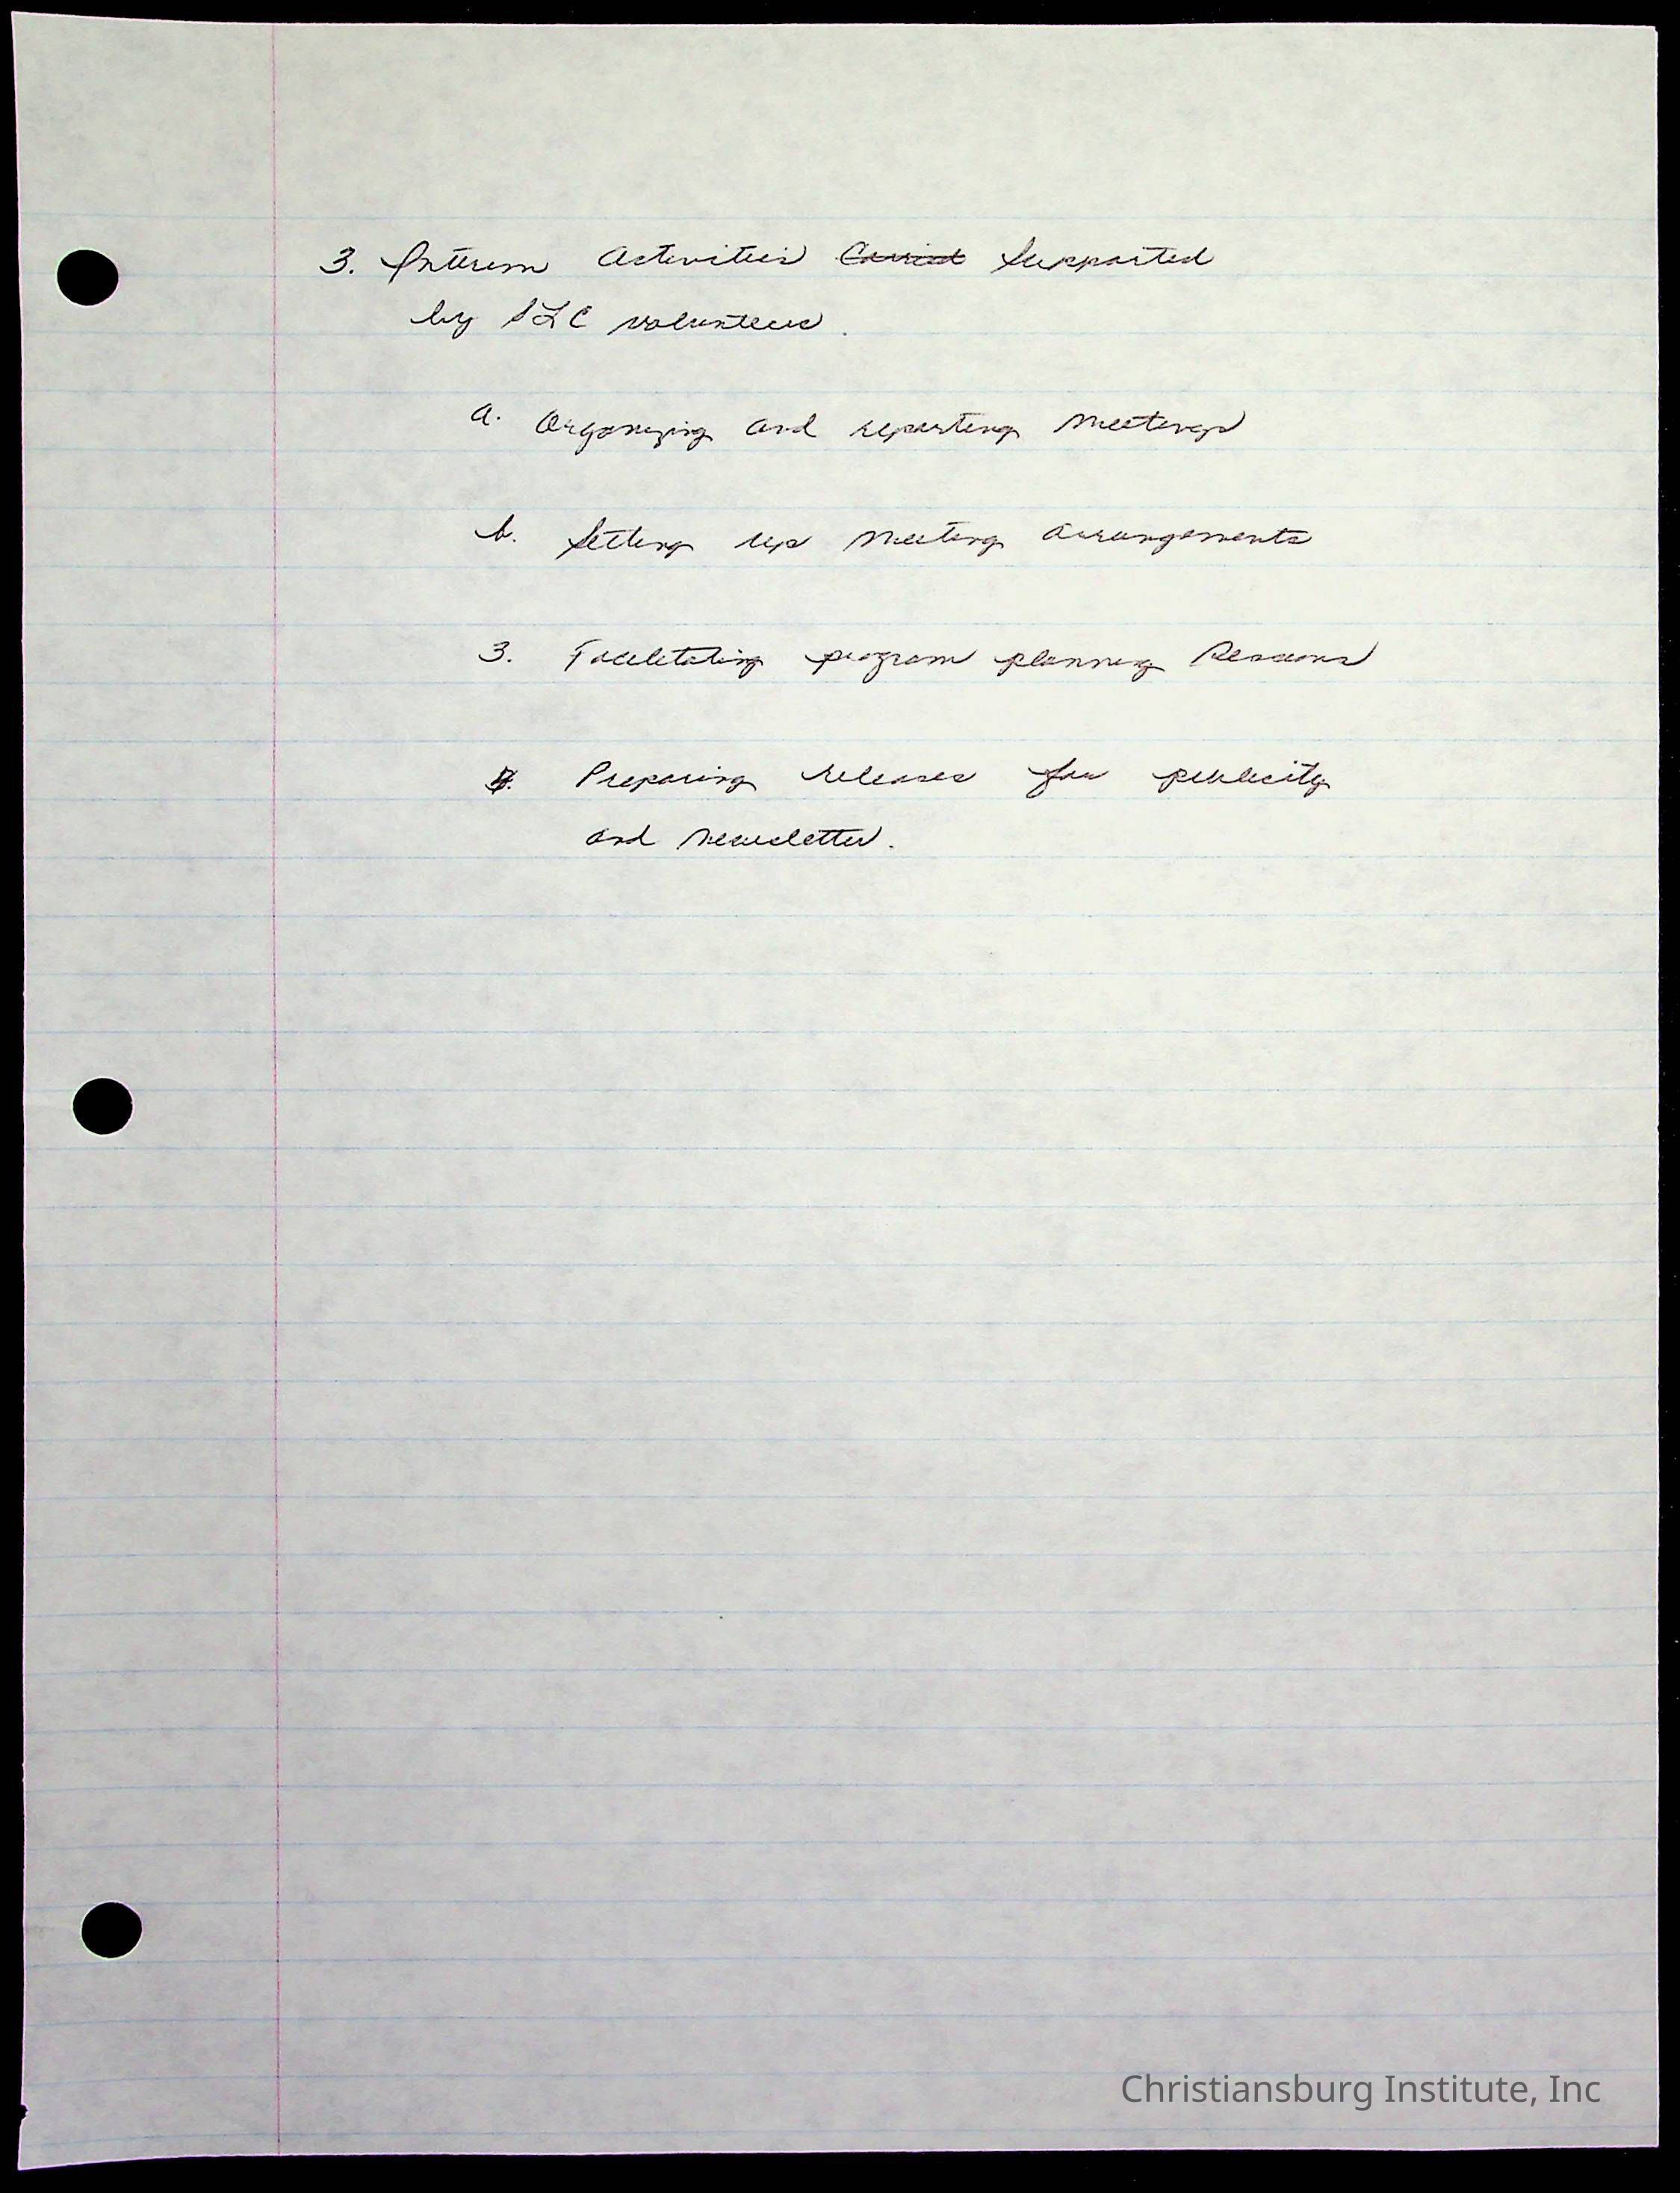 3. Interim Activities Carried Supported
by SLC volunteers.
a. Organizing and reporting meetings
b. Setting up meeting arrangements
3. Facilitating program planning sessions
4. Preparing releases for publicity
and newsletter.
Christiansburg Institute, Inc